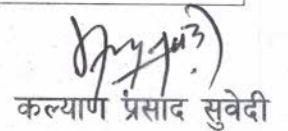 कल्याण प्रसाद सुवेदी